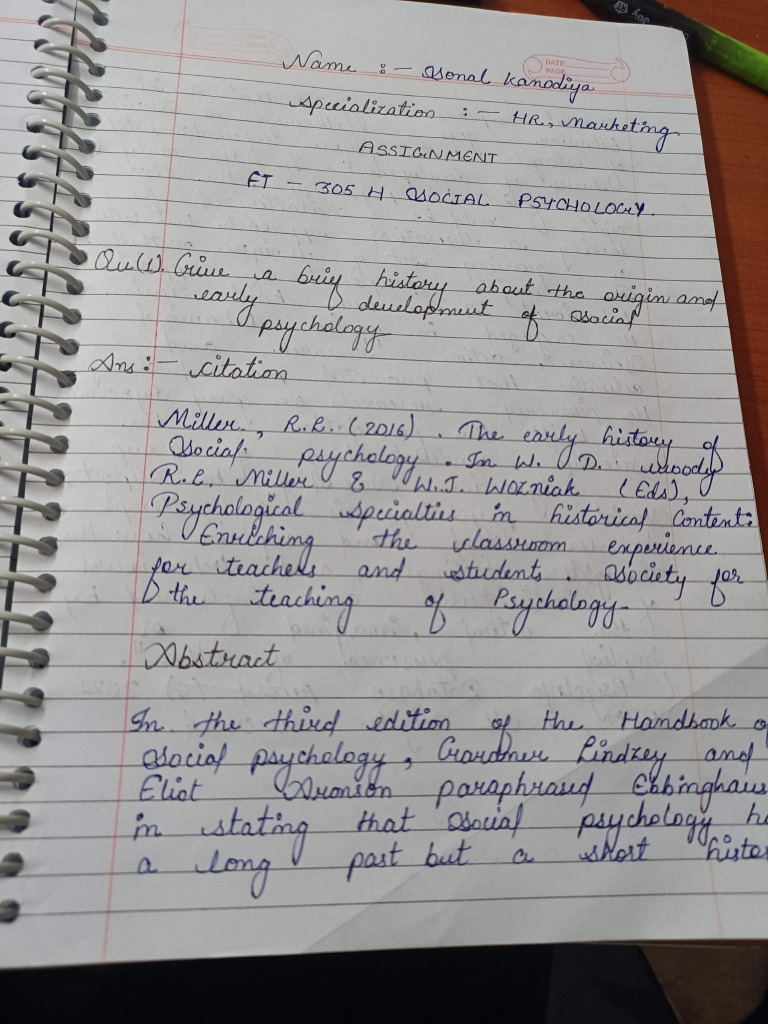 Joy
DATE
PAGE
Name :- Sonal Kanodiya
Specialization :- HR, Marketing
ASSIGNMENT
FT - 305 H SOCIAL PSYCHOLOGY.
Qu(1). Give a brief history about the origin and
early development of social
psychology
Ans :- Citation
Miller., R.L. (2016). The early history of
Social. psychology. In W. D. woody
R.L, Miller & W.J. Wozniak (Eds),
Psychological Specialties in historical Content:
Enriching the classroom experience
for teachers and students. Society for
the teaching of Psychology-
Abstract
In the third edition of the Handbook o
Social psychology, Gardner Lindzey and
Eliot Aronson paraphrased Ebbinghaus
in stating that social psychology h
a long past but a short histo